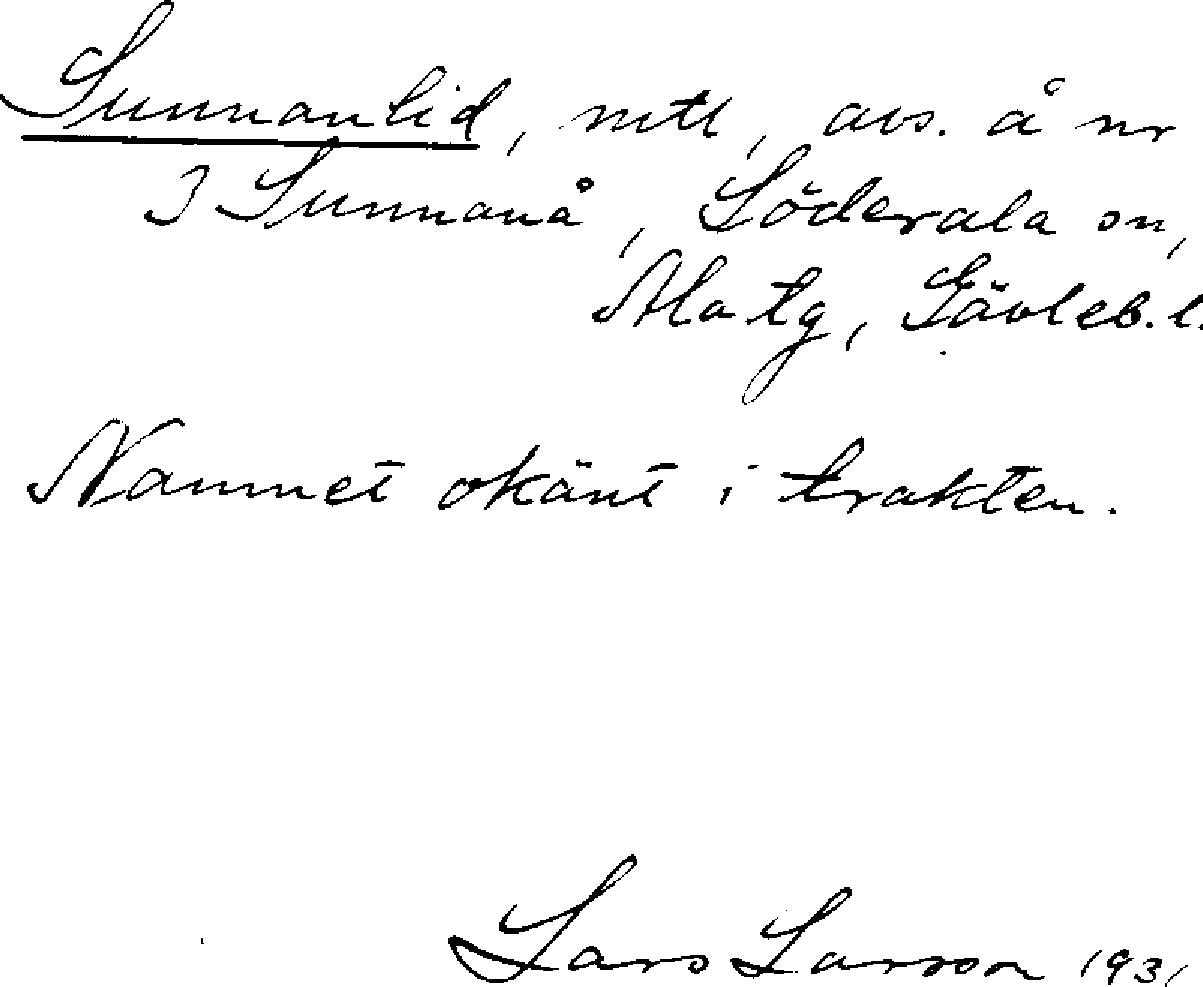 Sunnanlid, mtl, avs. å nr
3 Sunnanå, Söderala sn,
Ala tg, Gävleb. l.
Namnet okänt i trakten.
Lars Larson 1931